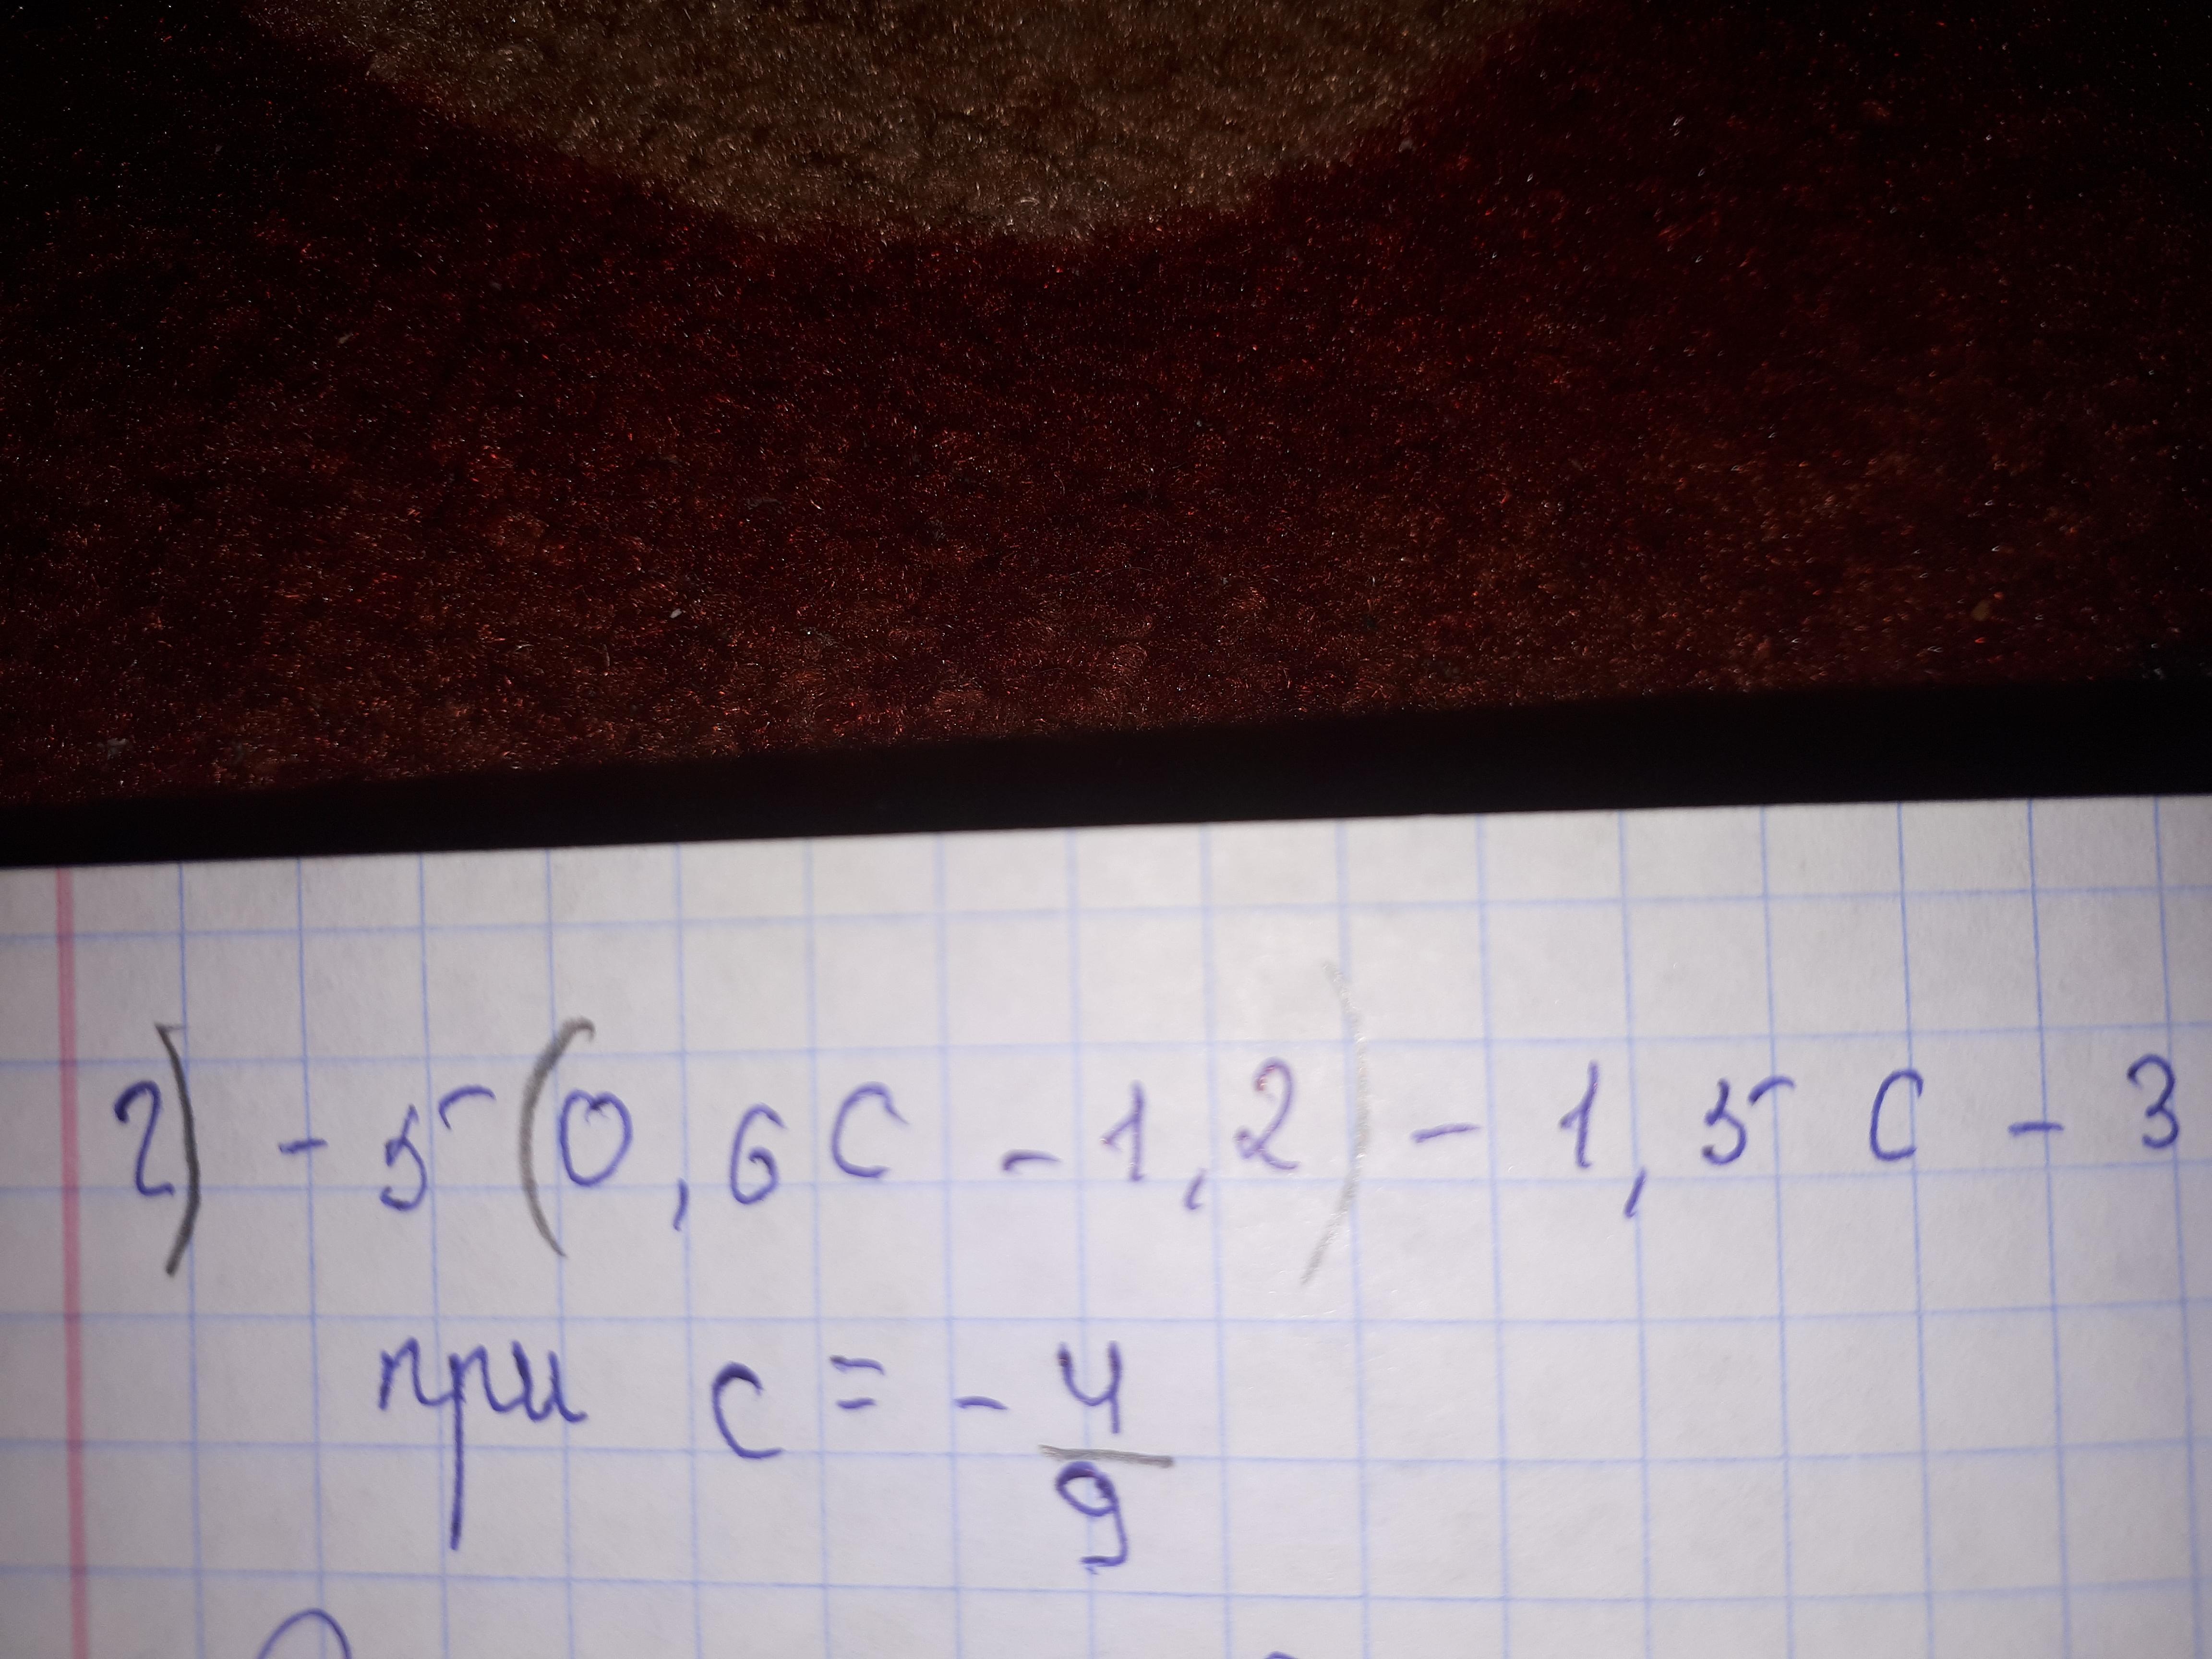 2) - 5 (0,6 c - 1,2) - 1,5 c - 3
при c = - 4/9